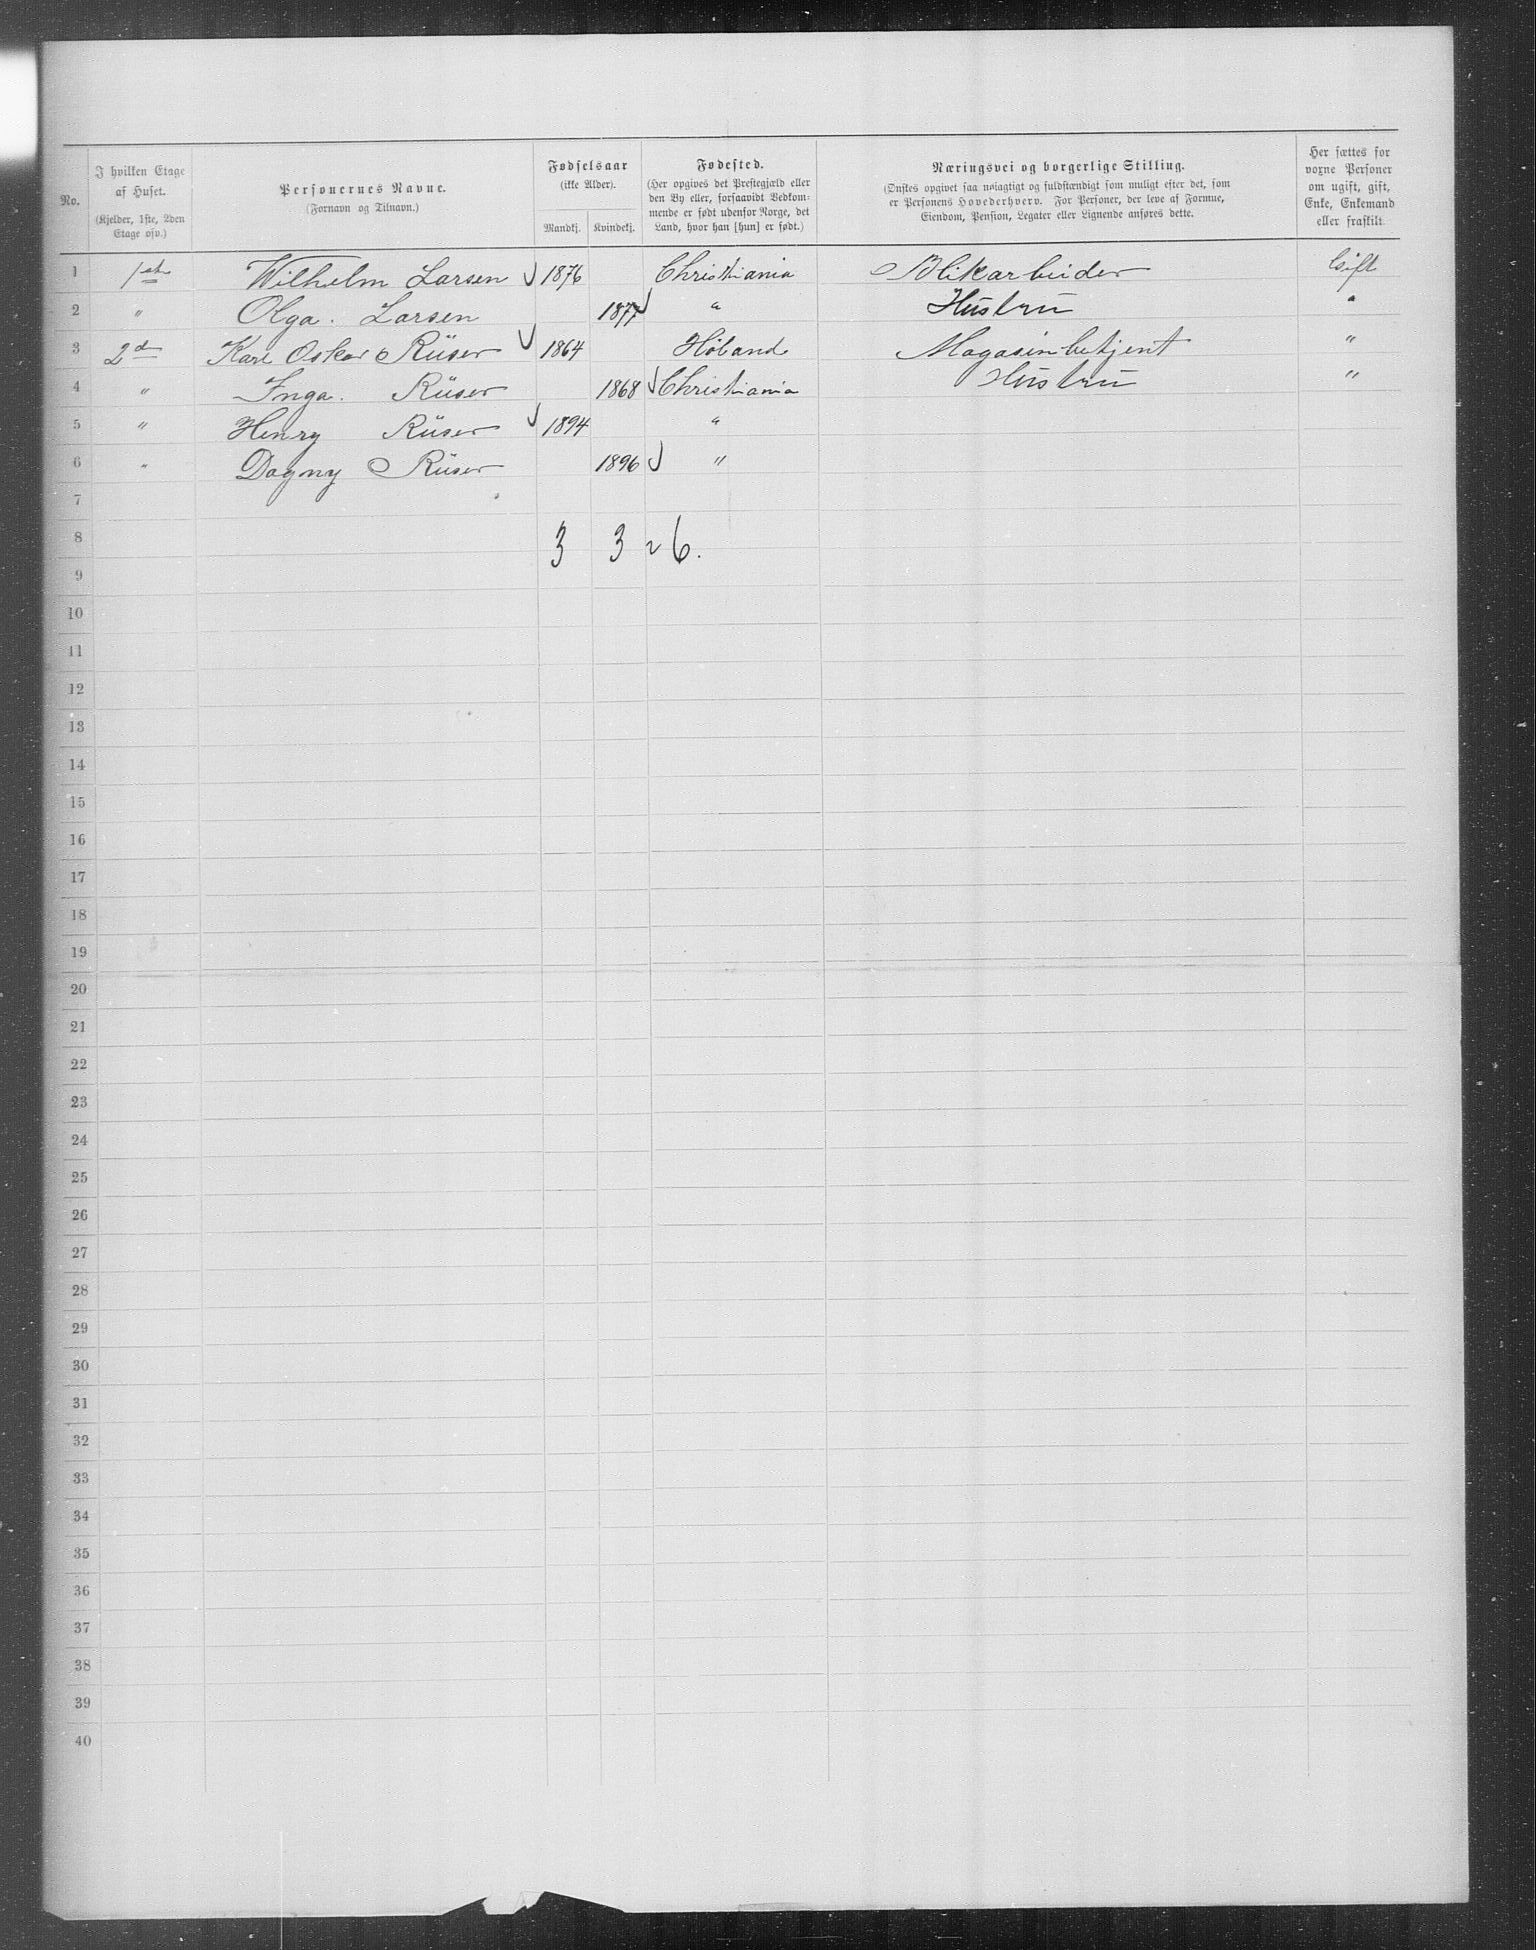 No.
I hvilken Etage af Huset.
(Kjelder, 1ste, 2den Etage osv.)
Personernes Navne.
(Fornavn og Tilnavn.)
Fødselsaar
(ikke Alder).
Mandkj. Kvindekj.
Fødested.
(Her opgives det Prestegjæld eller
den By eller, forsaavidt Vedkom-
mende er født udenfor Norge, det
Land, hvor han [hun] er født.)
Næringsvei og borgerlige Stilling.
(Ønskes opgivet saa nøiagtigt og fuldstændigt som muligt efter det, som
er Personens Hovederhverv. For Personer, der leve af Formue,
Eiendom, Pension, Legater eller Lignende anføres dette.
Her sættes for
voxne Personer
om ugift, gift,
Enke, Enkemand
eller fraskilt.
1 1ste Wilhelm Larsen 1876 Christiania Blikarbeider Gift
2 " Olga. Larsen 1877 " Hustru "
3 2d Karl Oskar Rüser 1864 Høland Magasinbetjent "
4 " Inga. Rüser 1868 Christiania Hustru "
5 " Henry Rüser 1894 "
6 " Dagny Rüser 1896 "
7
8 3 3 ~ 6.
9
10
11
12
13
14
15
16
17
18
19
20
21
22
23
24
25
26
27
28
29
30
31
32
33
34
35
36
37
38
39
40